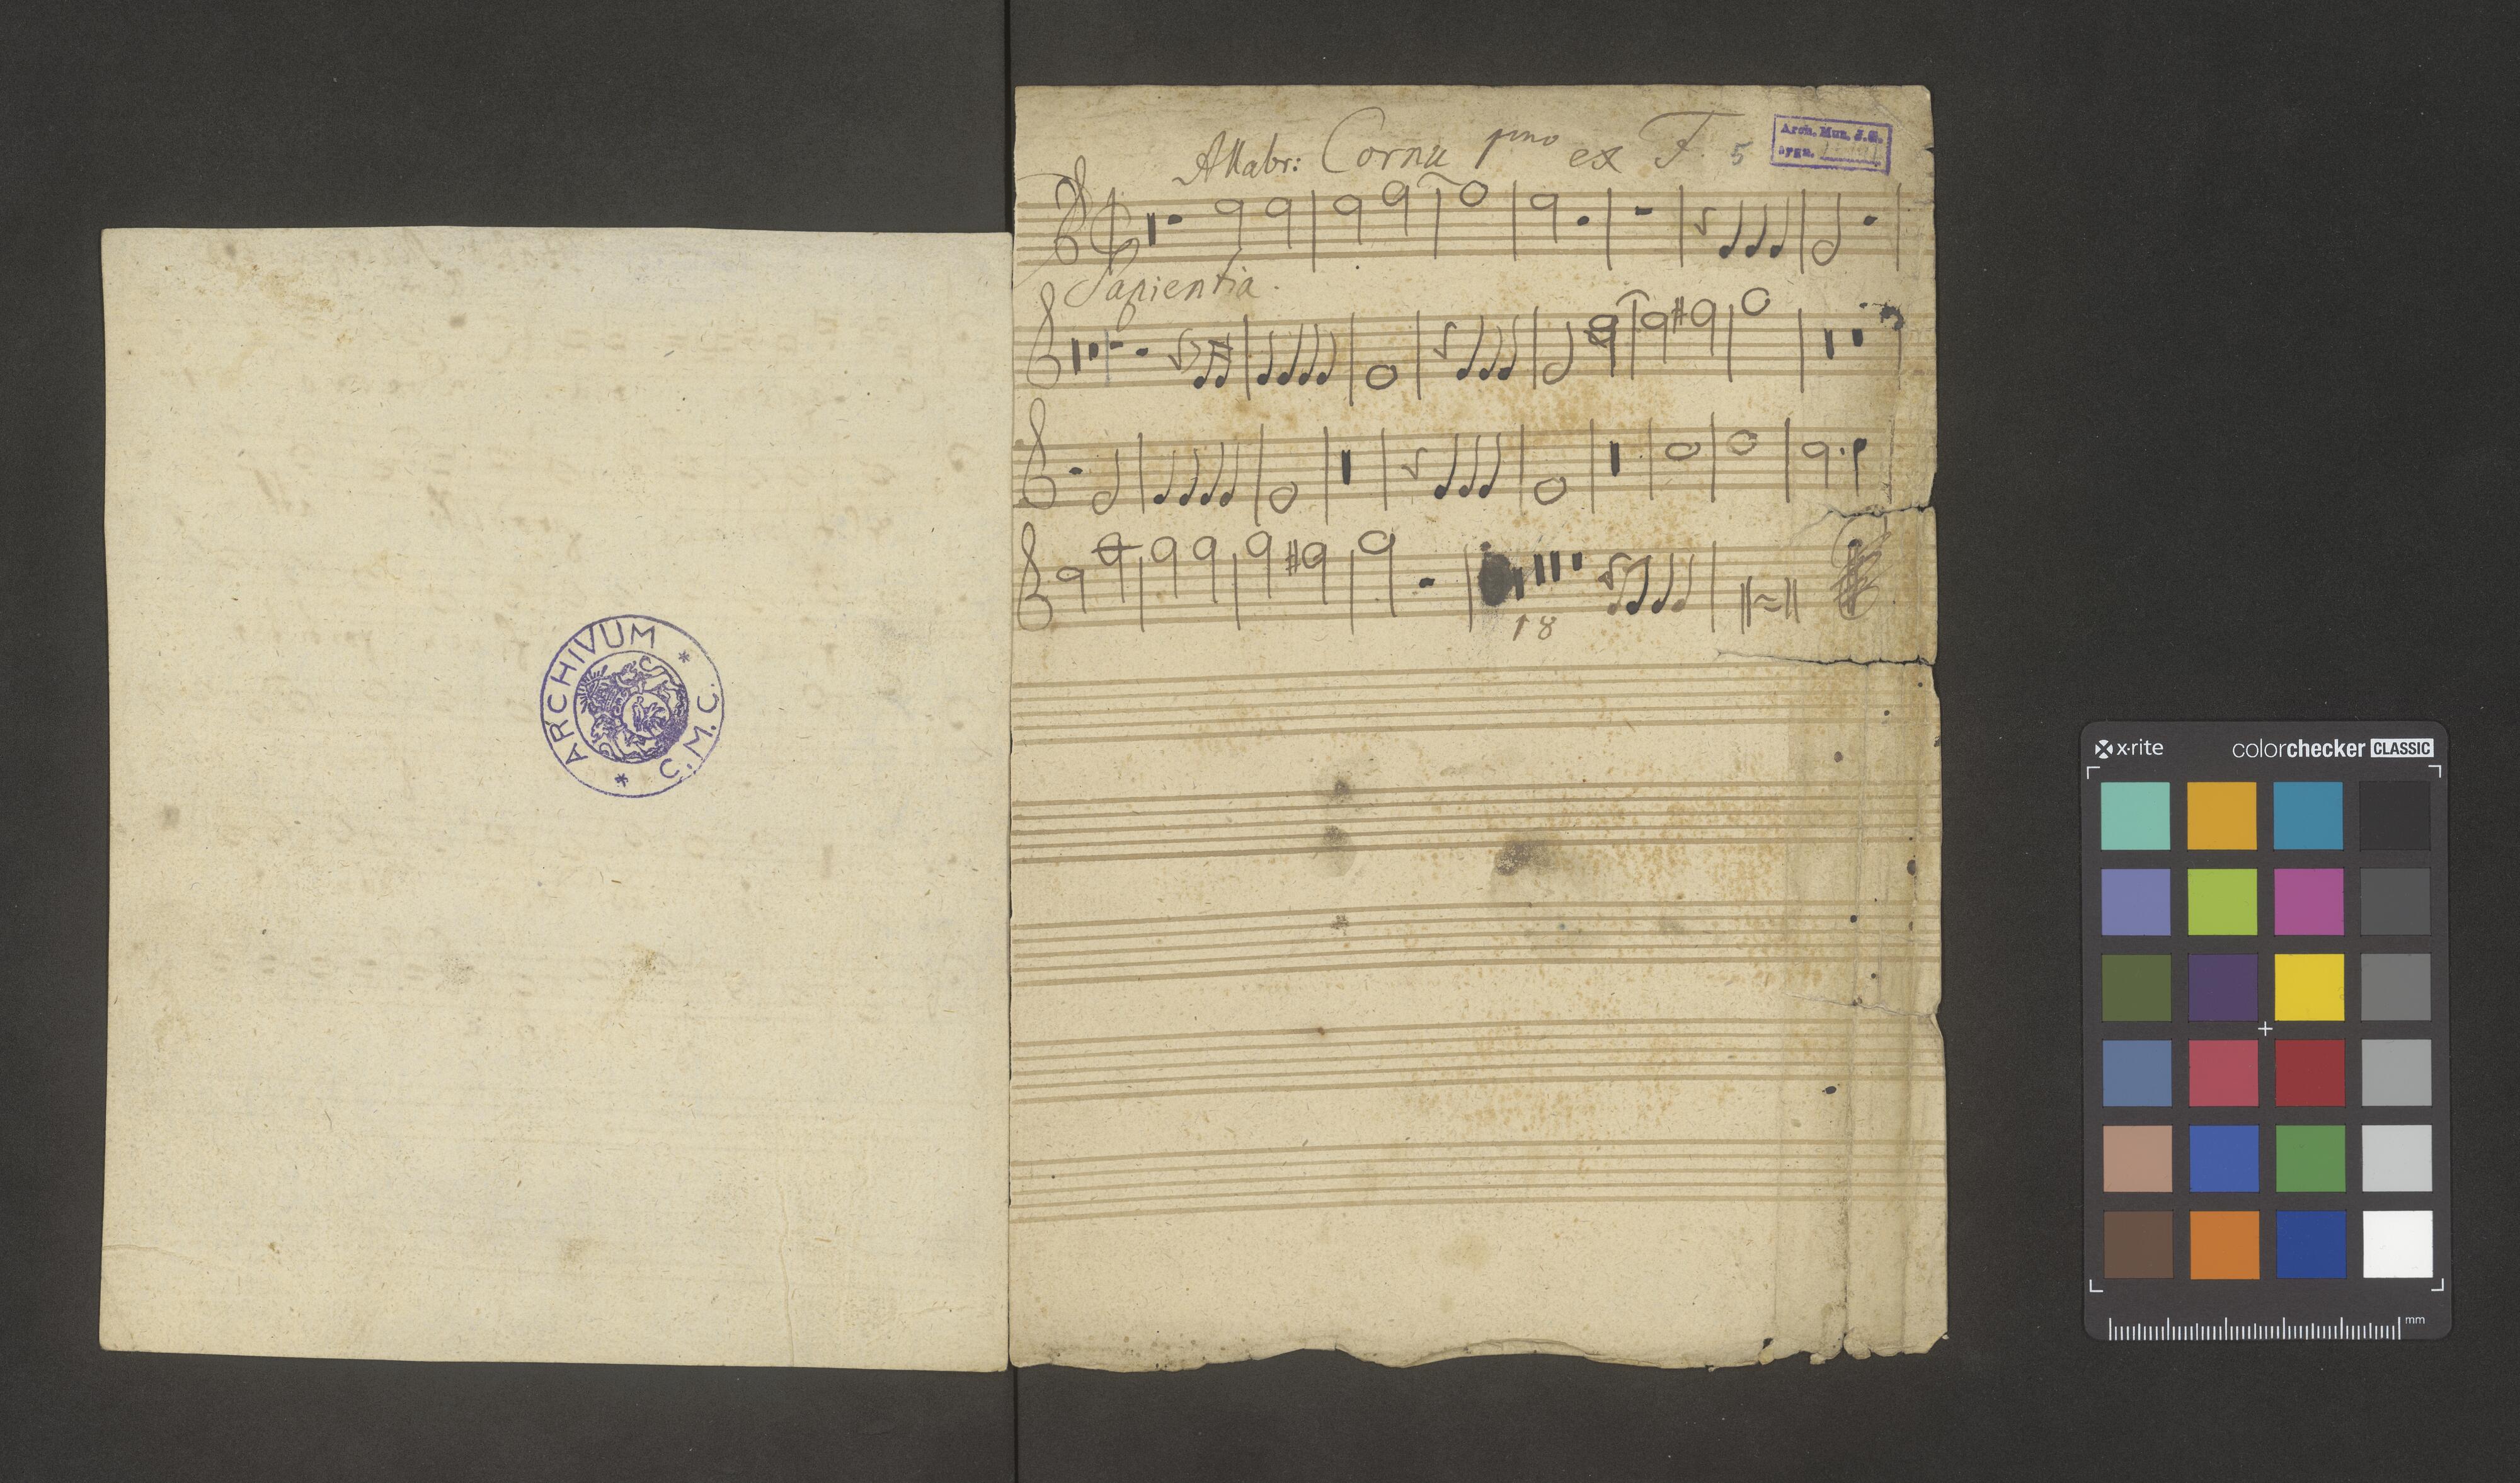 ARCHIVUM * C. M. C. *
Allabr: Cornu pmo ex F. 5
Arch. Mun. J.G.
sygn.
Sapientia.
18
x·rite colorchecker CLASSIC
mm